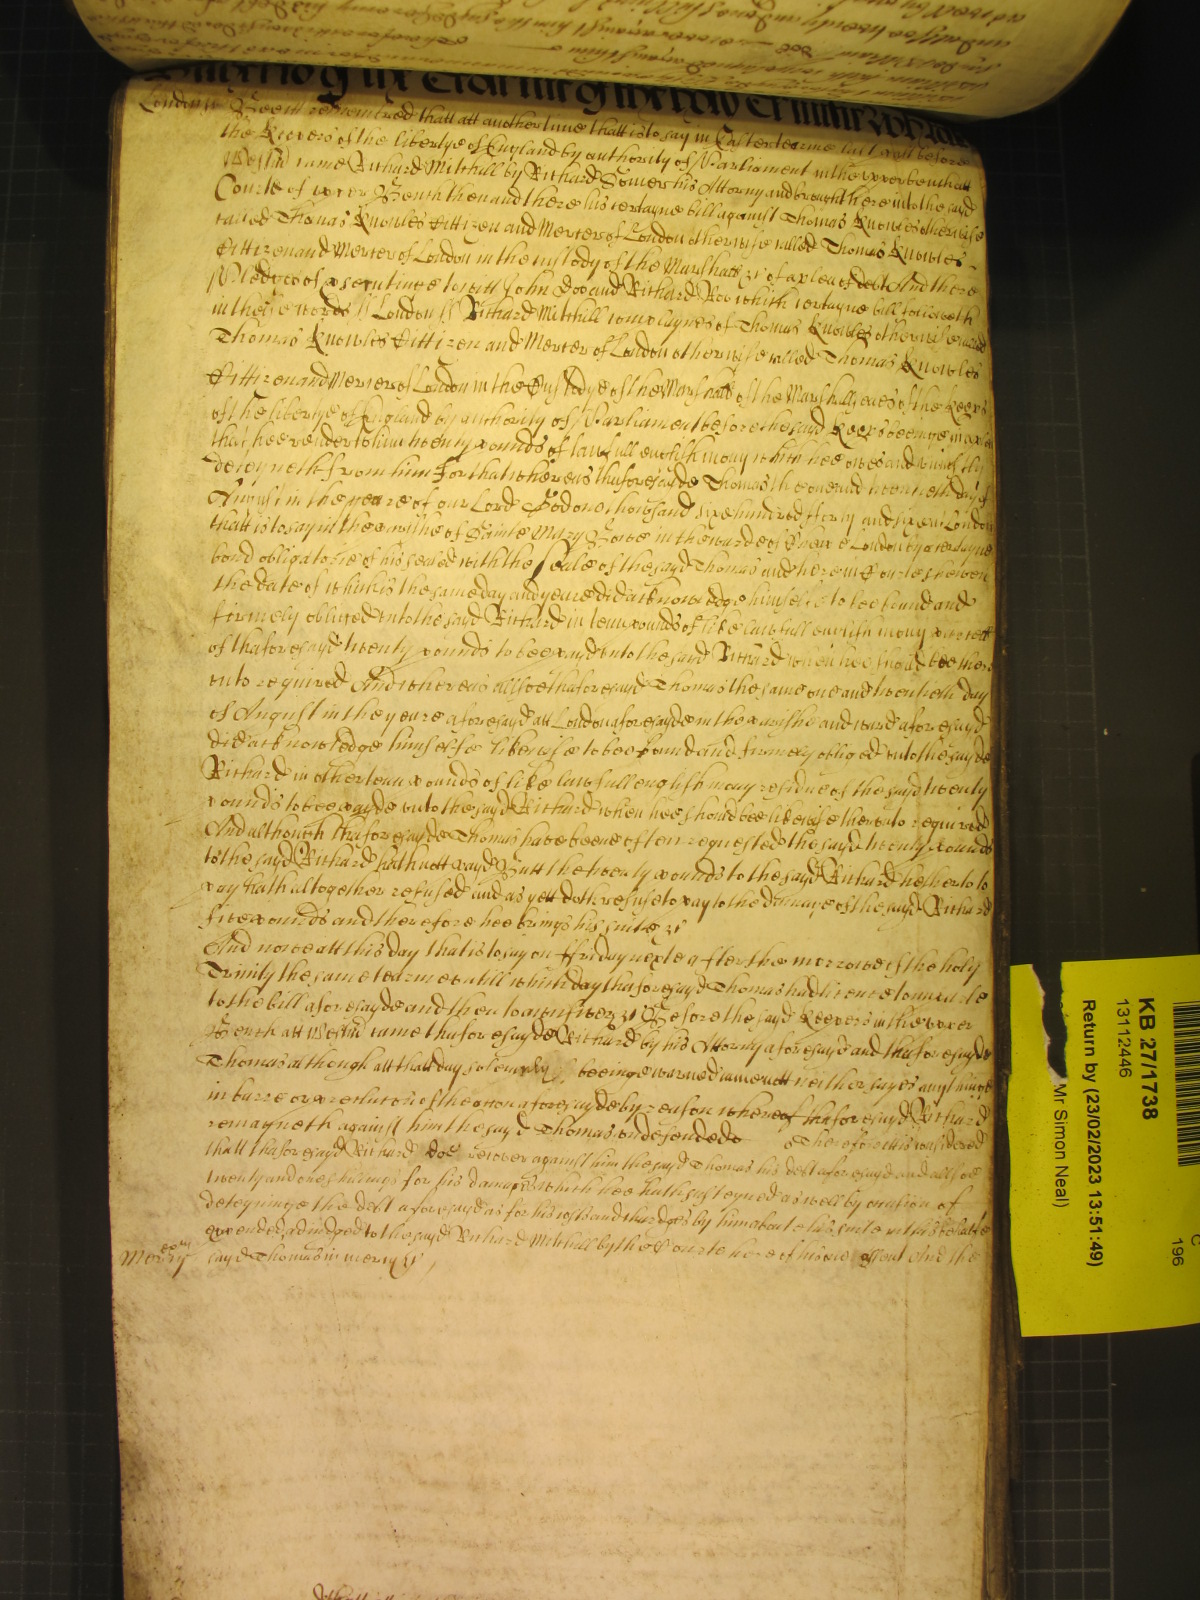 London ss Bee itt remembred thatt att another time thatt is to say in Easter tearme last past before
the Keepers of the libertye of England by authority of Parliament in the upper bench att
Westm̃ came Richard Mitchill by Richard Somer his Attorny and brought here into the sayd
Courte of upper Bench then and there his certayne bill against Thomas Knowles otherwise
called Thomas Knowles Cittizen and Mercer of London otherwise called Thomas Knowles
Cittizen and Mercer of London in the custody of the Marshall &c of a plea of debt And there
Pledges of prosecution to witt John Doo and Richard Roo which certayne bill followeth
in these words ss London ss Richard Mitchill complaynes of Thomas Knowles otherwise called
Thomas Knowles Cittizen and Mercer of London otherwise called Thomas Knowles
Cittizen and Mercer of London in the Custodye of the Marshall of the Marshallseaes of the Keeps
of the libertye of England by authority of Parliament before the sayd Keeps beeinge in a plea
that hee render to him twenty pounds of lawfull english mony which hee owes and uniustly
deteyneth from him For that whereas thaforesayde Thomas the one and twentieth day of
August in the yeare of our Lord God one thousand six hundred forty and six att London
thatt is to say in the parishe of Sainte Mary Bowe in the warde of Cheape London by a certayne
bond obligatorie of his sealed with the Seale of the sayd Thomas and here in Courte shewen
the date of which is the same day and yeare did acknowledge himselfe to bee bound and
firmely obliged unto the sayd Richard in tenn pounds of like lawfull english mony parcell
of thaforesayd twenty pounds to bee payd unto the sayd Richard when hee should bee there
unto required And whereas allsoe thaforesayd Thomas the same one and twentieth day
of August in the yeare aforesayd att London aforesayde in the parishe and ward aforesayd
did acknowledge himselfe likewise to bee bound and firmely obliged unto the sayde
Richard in other tenn pounds of like lawfull english mony residue of the sayd twenty
pounds to bee payde unto the sayd Richard when hee should bee likewise thereunto required
And although thaforesayde Thomas have beene often requested the sayd twenty pounds
to the sayd Richard hath nott payd Butt the twenty pounds to the sayd Richard hetherto to
pay hath altogether refused and as yett doth refuse to pay to the damage of the sayd Richard
five pounds and therefore hee brings his suite &c
And nowe att this day that is to say on ffriday nexte after the morrowe of the holy
Trinity the same tearme untill which day thaforesayd Thomas had licence to imparle
to the bill aforesayde and then to answer &c Before the sayd Keepers in the upper
Bench att Westm̃ came thaforesayde Richard by his Attorny aforesayd and thaforesayde
Thomas although att thatt day solemnly beeinge warned came nott neither sayes any thinge
in barre or preclusion of the action aforesayde by reason whereof thaforesayd Richard
remayneth against him the sayd Thomas undefended Therefore itt is considered
thatt thaforesayd Richard doe recover against him the sayd Thomas his debt aforesayd and allsoe
twenty and one shillings for his damages which hee hath susteyned as well by occasion of
deteyninge the debt aforesayd as for his costs and chardges by him about his suite in this behalfe
expended adiudged to the sayd Richard Mitchill by the Courte here of his owne assent And the
Mercy sayd Thomas in mercy &c
KB 27/1738
13112446
Return by (23/02/2023 13:51:49)
Mr Simon Neal)
196